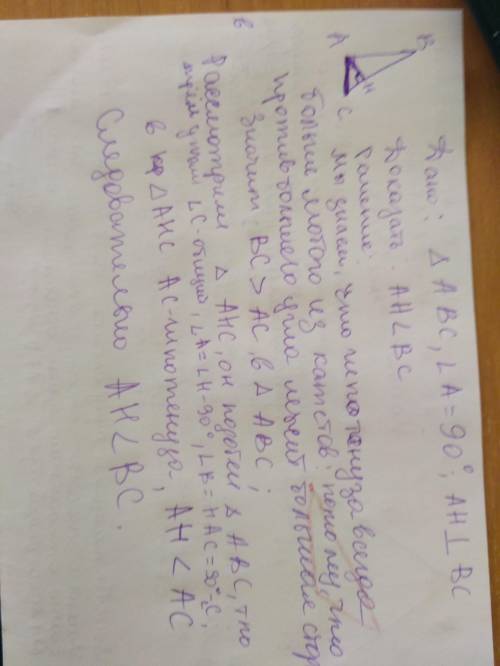 Дано: Δ ABC, ∠A = 90°; AH ⊥ BC
Доказать: AH < BC
B
H
A
C
Решение:
Мы знаем, что гипотенуза всегда
больше любого из катетов, потому, что
против большего угла лежит большая стор
Значит: BC > AC, в Δ ABC;
Рассмотрим Δ AHC, он подобен Δ ABC, т по
трём углам ∠C-общий, ∠A=∠H=90°, ∠B = HAC = 90°-C;
в Δ AHC AC-гипотенуза, AH < AC
Следовательно AH < BC.
в